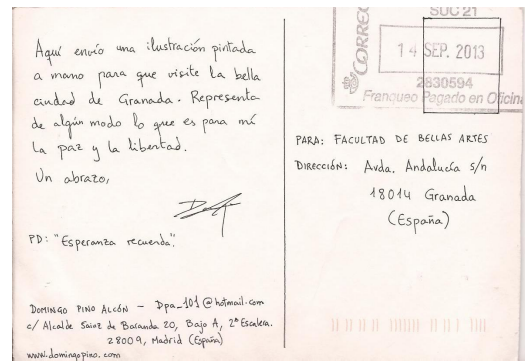 Aquí envío una ilustración pintada
a mano para que visite la bella
ciudad de Granada. Representa
de algún modo lo que es para mí
la paz y la libertad.
Un abrazo,
PD: "Esperanza recuerda".
DOMINGO PINO ALCÓN - Dpa_101@hotmail.com
c/ Alcalde Sainz de Baranda 20, Bajo A, 2ª Escalera.
28009, Madrid (España)
www.domingopino.com
CORREO
SUC 21
14 SEP. 2013
2830594
Franqueo Pagado en Oficina
PARA: FACULTAD DE BELLAS ARTES
DIRECCIÓN: Avda. Andalucía s/n
18014 Granada
(España)